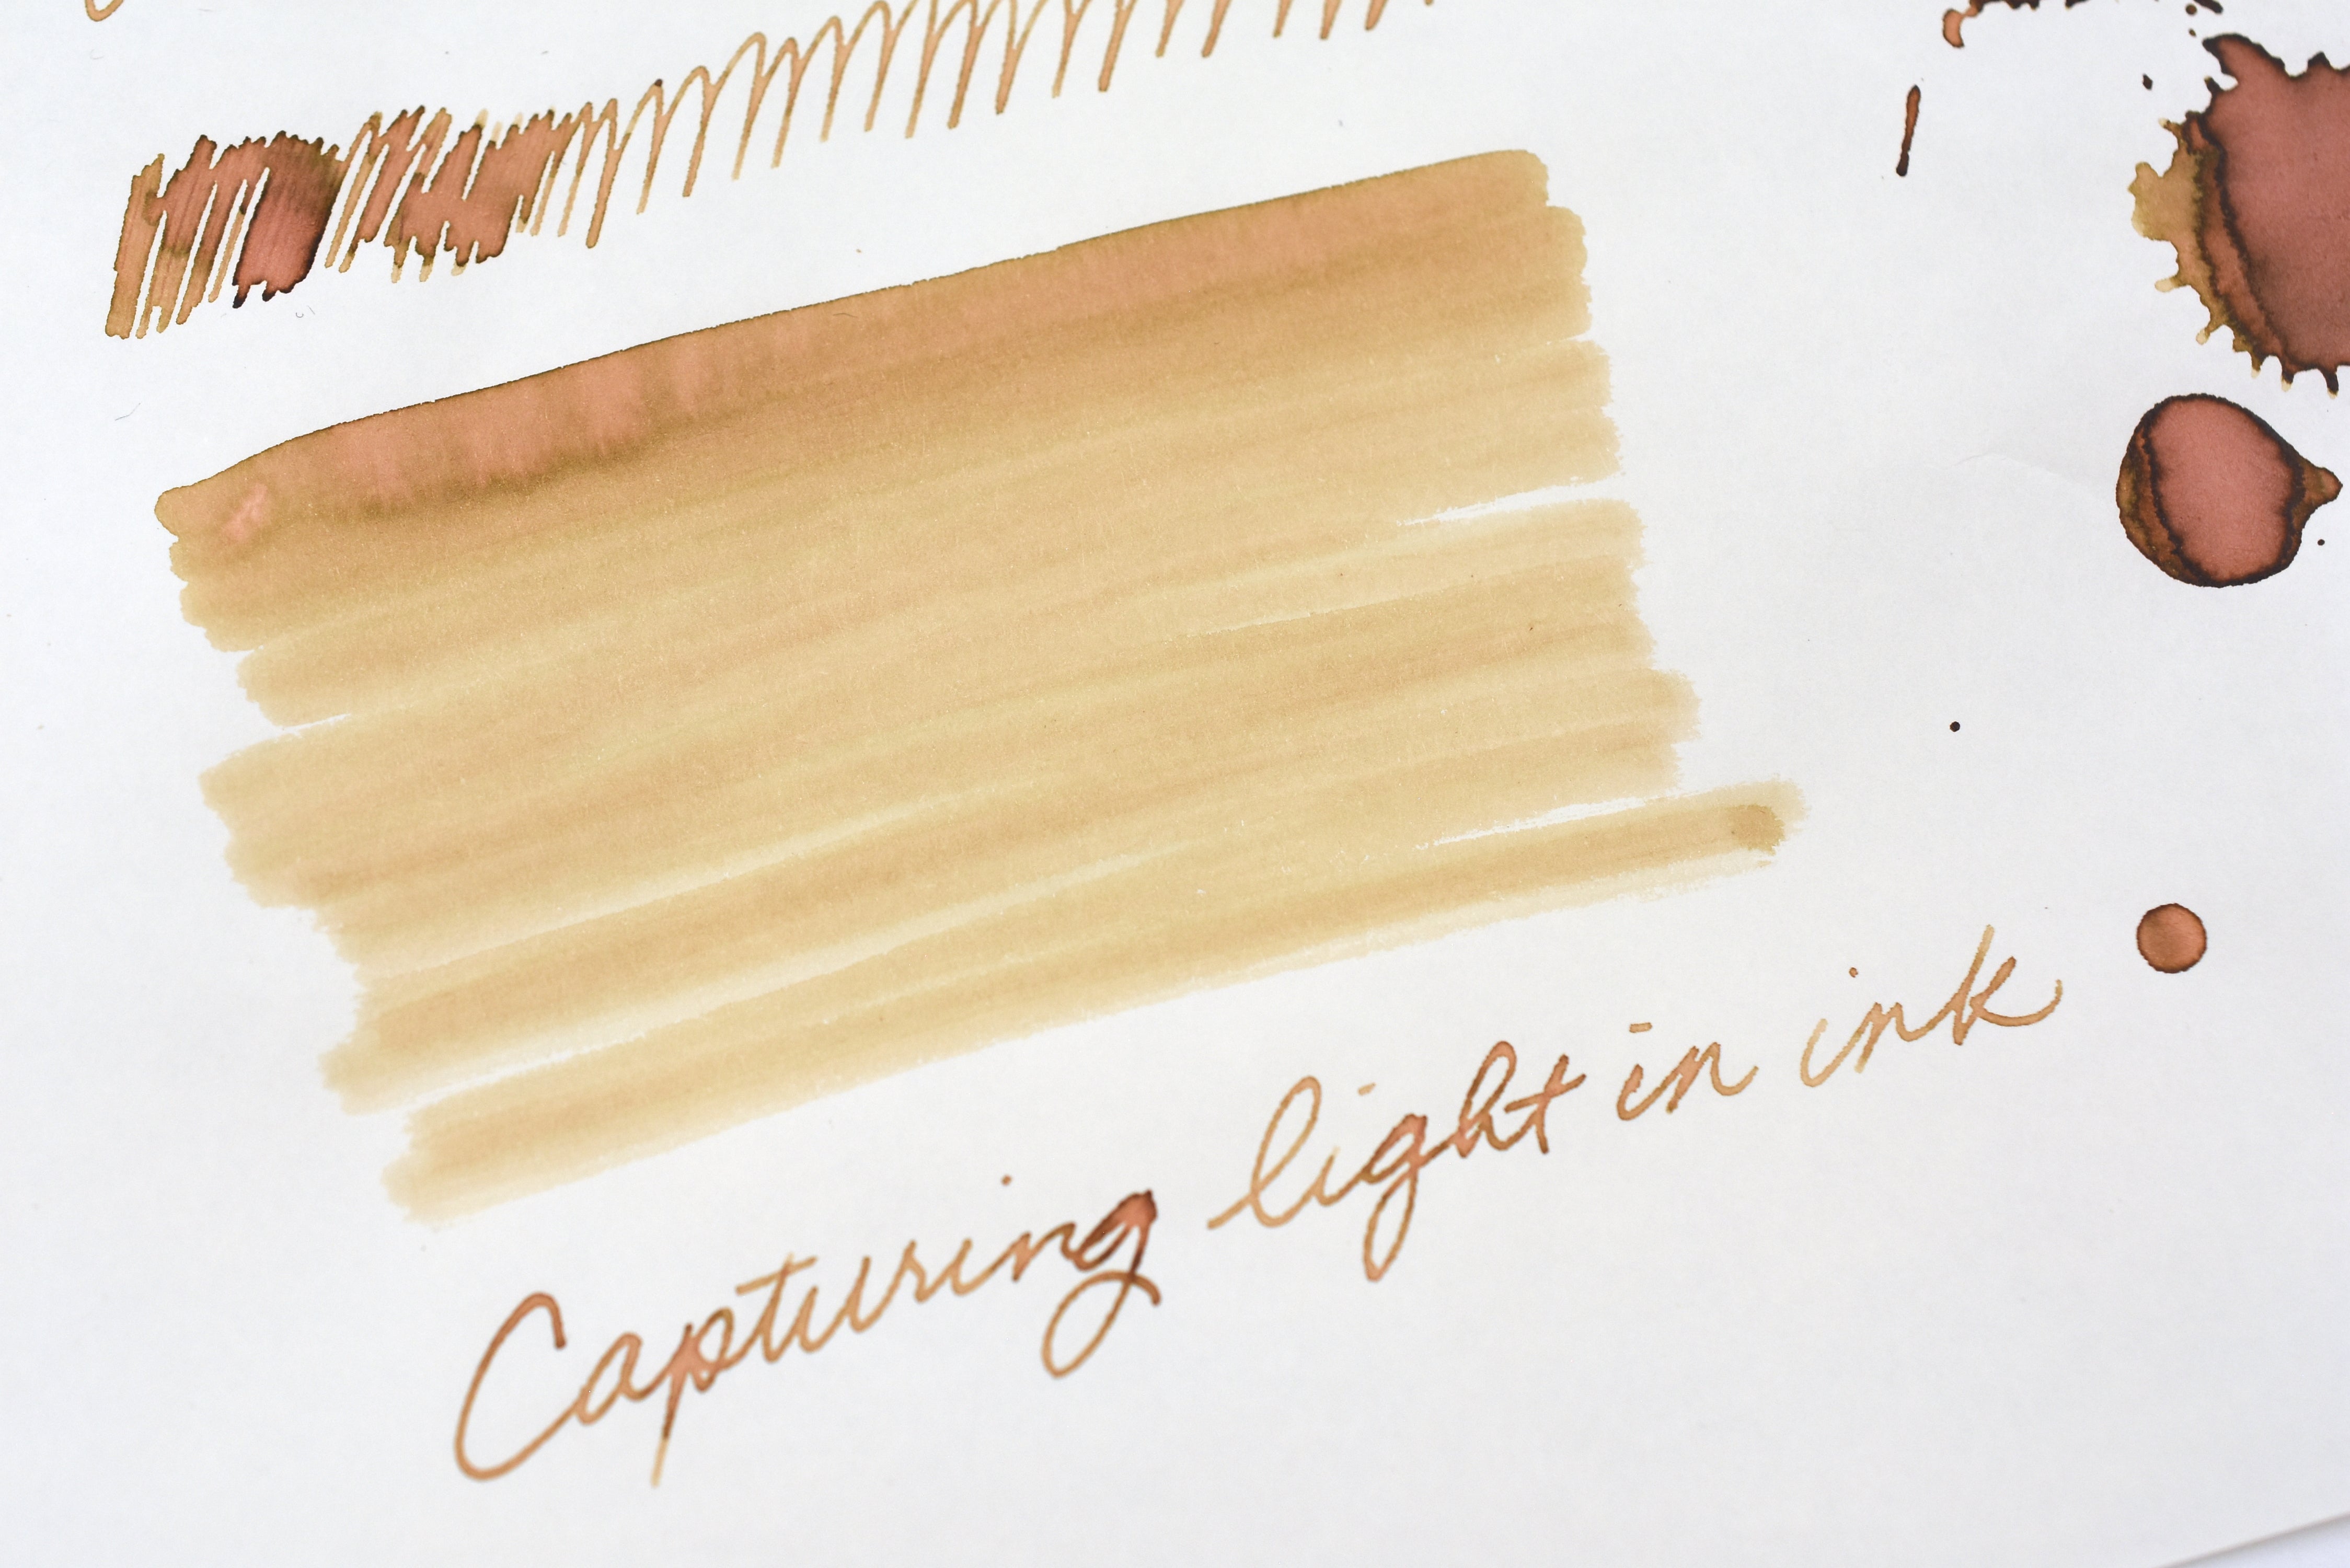 Capturing light in ink